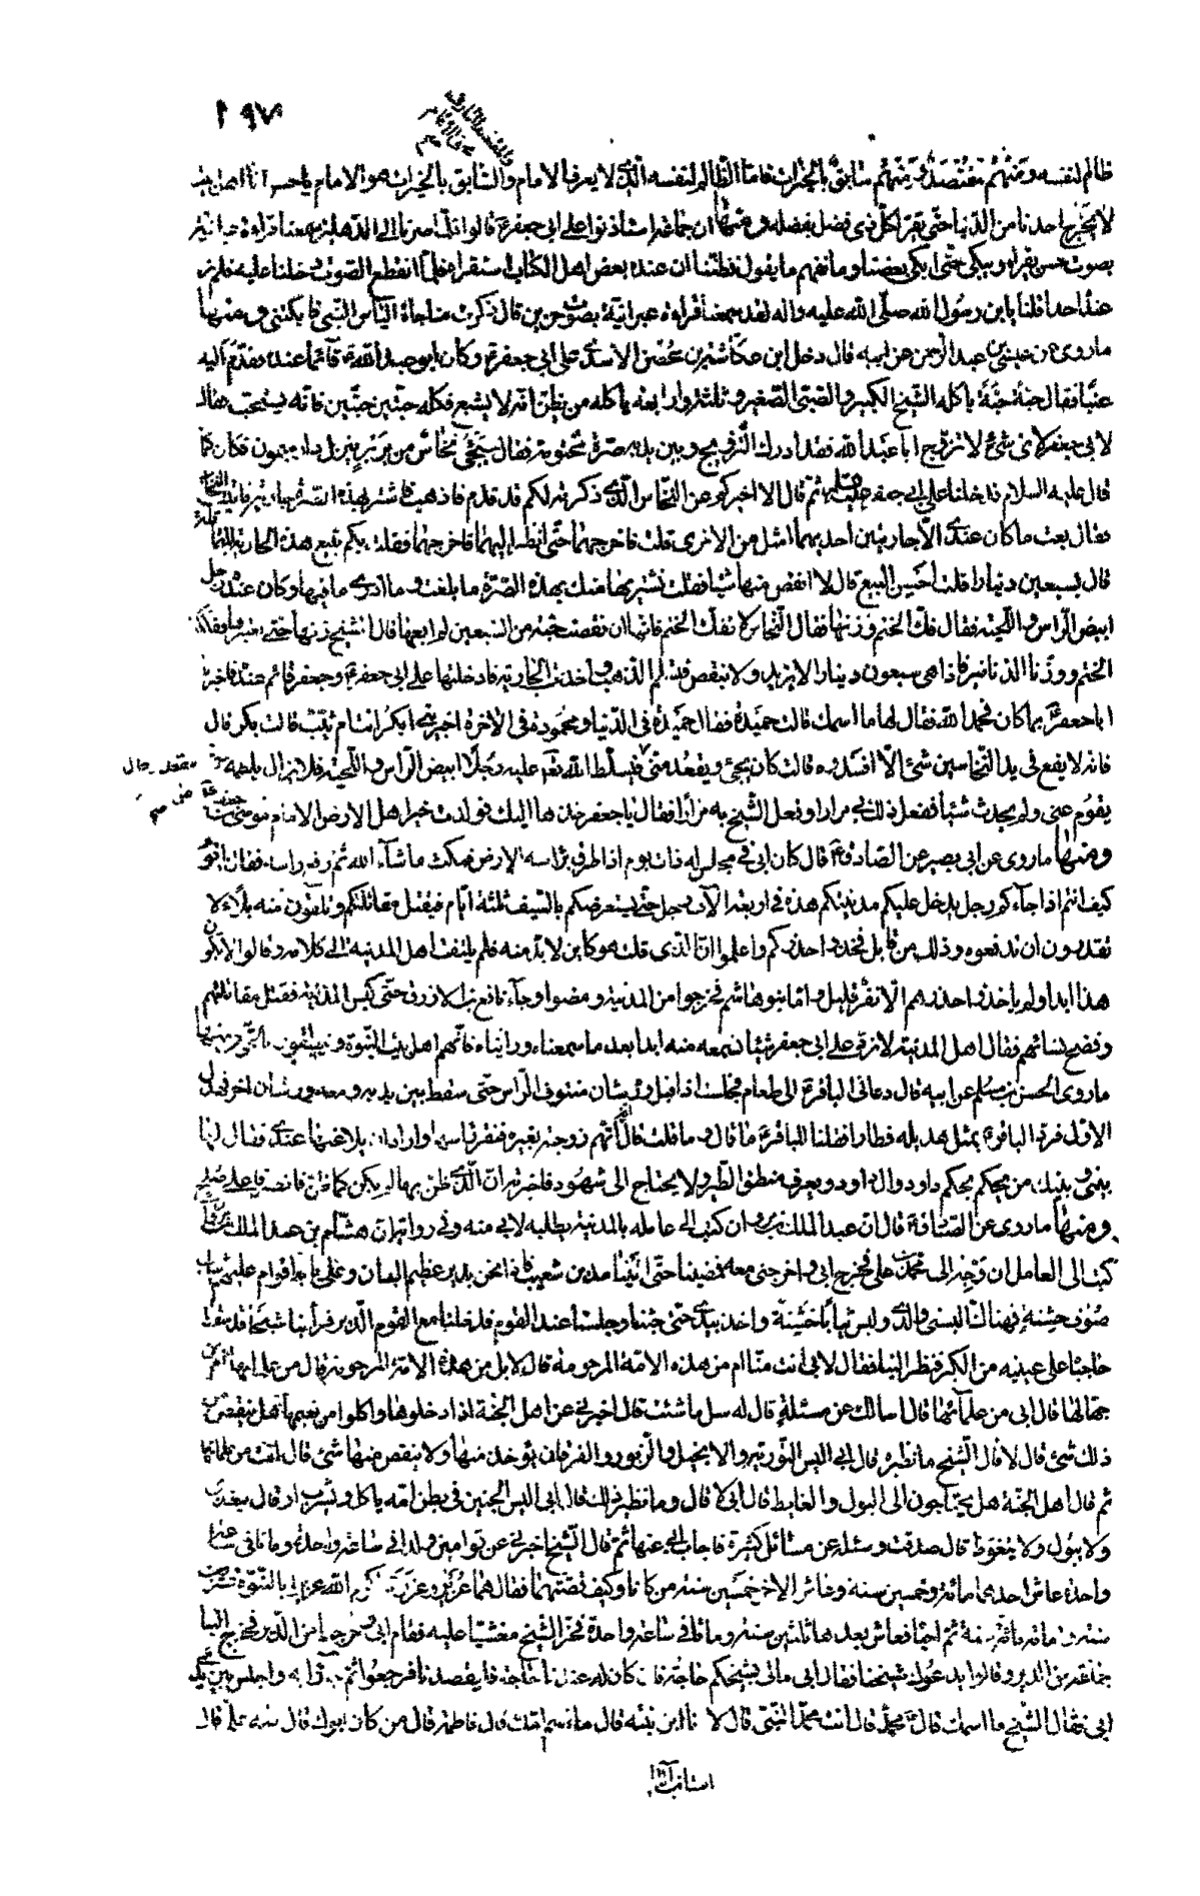 ١٩٧
والمقتصد العارف
ظالم لنفسه ومنهم مقتصد ومنهم سابق بالخيرات فاما الظالم لنفسه الذى لا يعرف الامام والسابق بالخيرات هو الامام يا حسن انا اهل بيت
لا يخرج احدنا من الدنيا حتى يقر لكل ذى فضل بفضله ومنها ان جماعة استاذنوا على ابى جعفر ع قالوا فلما صرنا الى الدهليز سمعنا قراءة سريانية
بصوت حسن يقرا ويبكى حتى ابكى بعضنا وما نفهم ما يقول فظننا ان عنده بعض اهل الكتاب استقراه فلما انقطع الصوت دخلنا عليه فلم نر
عنده احدا فلنا يابن رسول الله صلى الله عليه واله لقد سمعنا قراءة عبرانية بصوت حزين قال ذكرت مناجاة الياس النبى فابكتنى ومنها
ماروى عن عيسى بن عبد الرحمن عن ابيه قال دخل ابن عكاشة بن محصن الاسدى على ابى جعفر ع وكان ابو عبد الله ع قائما عنده فقدم اليه
عنبا فقال حبة حبة ياكله الشيخ الكبير والصبى الصغير وثلثة واربعة ياكله من يظن انه لا يشبع فكله حبتين حبتين فانه يستحب فقال
لابى جعفر لاى شئ لا تزوج ابا عبد الله فقد ادرك التزويج وبين يديه صرة مختومة فقال سيجئ نخاس من بربر ينزل دار ميمون فكان كما
قال عليه السلام فدخلنا على ابى جعفر ثم قال الا اخبركم عن النخاس الذى ذكرته لكم قد قدم فاذهبوا فاشتر بهذه الصرة جارية فاتيت النخاس
فقال بعت ما كان عندى الا جاريتين احديهما امثل من الاخرى قلت فاخرجهما حتى انظر اليهما فاخرجهما فقلت بكم تبيع هذه الجارية
قال بسبعين دينارا قلت احسن البيع قال لا انقص منها شيئا فقلت نشتريها منك بهذه الصرة ما بلغت وما ندرى ما فيها وكان عنده رجل
ابيض الراس واللحية فقال فك الختم وزنها فقال النخاس لا تفك الختم فانها ان نقصت حبة من السبعين لم ابعها قال الشيخ زنها حتى
الختم ووزنا الدنانير فاذا هى سبعون دينارا لا تزيد ولا تنقص فاخذت الجارية فادخلتها على ابى جعفر ع وجعفر قائم عنده فاخبرت
ابا جعفر بما كان فحمد الله فقال لها ما اسمك قالت حميدة فقال حميدة فى الدنيا ومحمودة فى الاخرة اخبرينى ابكر انت ام ثيب قالت بكر قال
فانه لا يقع فى يد النخاسين شئ الا افسدوه قالت كان يجئ ويقعد منى فيسلط الله تعالى عليه رجلا ابيض الراس واللحية فلا يزال يلطمه حتى
يقوم عنى ولم يحدث شيئا ففعل ذلك بى مرارا وفعل الشيخ به مرارا فقال يا جعفر خذها اليك فولدت خير اهل الارض الامام موسى بن جعفر
ومنها ماروى عن ابى بصير عن الصادق ع قال كان ابى فى مجلس له ذات يوم اذ اطرق براسه الى الارض فمكث ما شاء الله ثم رفع راسه فقال يا قوم
كيف انتم اذا جاءكم رجل يدخل عليكم مدينتكم هذه فى اربعة الاف رجل حتى يستعرضكم بالسيف ثلثة ايام فيقتل مقاتلتكم وتلقون منه بلاء لا
تقدرون ان تدفعوه وذلك من قابل فخذوا حذركم واعلموا ان الذى قلت هو كاين لا بد منه فلم يلتفت اهل المدينة الى كلامه وقالوا لا يكون
هذا ابدا ولم ياخذوا حذرهم الا نفر قليل واما بنوهاشم فخرجوا من المدينة ومضوا وجاء نافع بن الازرق حتى كبس المدينة فقتل مقاتلتهم
وفضح نسائهم فقال اهل المدينة لا نرد على ابى جعفر شيئا نسمعه منه ابدا بعد ما سمعنا وراينا فانهم اهل بيت النبوة وينطقون بالحق ومنها
ماروى الحسن بن مسلم عن ابيه قال دعانى الباقر ع الى طعام فجلست اذ اقبل ورشان منتوف الراس حتى سقط بين يديه ومعه ورشان اخر فهدل
الاول فرد الباقر ع بمثل هديله فطارا فقلنا للباقر ع ما قال وما قلت قال انه اتهم زوجته بغيره فنقر راسها واراد ان يلاعنها عندى فقال لها
بينى وبينك من يحكم بحكم داود وال داود ويعرف منطق الطير ولا يحتاج الى شهود فاخبرته ان الذى ظن بها لم يكن كما ظن فانصرفا على صلح
ومنها ماروى عن الصادق ع قال ان عبد الملك بن مروان كتب الى عامله بالمدينة يطلبه لابى منه وفى رواية ان هشام بن عبد الملك
كتب الى العامل ان وجه الى محمد بن على فخرج ابى واخرجنى معه فمضينا حتى اتينا مدين شعيب فاذا نحن بدير عظيم البنيان وعلى بابه اقوام عليهم ثياب
صوف خشنة فهناك البسنى والدى ولبس ثيابا خشنة واخذ بيدى حتى جئنا وجلسنا عند القوم فدخلنا مع القوم الدير فراينا شيخا قد سقط
حاجباه على عينيه من الكبر فنظر الينا فقال لابى انت منا ام من هذه الامة المرحومة قال لا بل من هذه الامة المرحومة قال من علمائها ام من
جهالها قال ابى من علمائها قال اسالك عن مسئلة قال له سل ما شئت قال اخبرنى عن اهل الجنة اذا دخلوها واكلوا من نعيمها هل ينقص من
ذلك شئ قال لا قال الشيخ ما نظيره قال ابى اليس التورية والانجيل والزبور والفرقان يؤخذ منها ولا ينقص منها شئ قال انت من علمائها
ثم قال اهل الجنة هل يحتاجون الى البول والغايط قال ابى لا قال وما نظير ذلك قال ابى اليس الجنين فى بطن امه ياكل ويشرب
ولا يبول ولا يتغوط قال صدقت وسئله عن مسائل كثيرة فاجاب ابى عنها ثم قال الشيخ اخبرنى عن توامين ولدا فى ساعة واحدة وماتا فى ساعة
واحدة عاش احدهما مائة وخمسين سنة وعاش الاخر خمسين سنة من كانا وكيف قصتهما فقال هما عزير وعزرة اكرم الله عزيرا بالنبوة عشرين
سنة واماته مائة سنة ثم احياه فعاش بعدها ثلثين سنة وماتا فى ساعة واحدة فخر الشيخ مغشيا عليه فقام ابى وخرجنا من الدير فخرج الينا
جماعة من الدير وقالوا يدعوك شيخنا فقال ابى مالى بشيخكم حاجة فان كان له عندنا حاجة فليقصدنا فرجعوا ثم جاؤا به واجلس بين يدى
ابى فقال الشيخ ما اسمك قال ع محمد قال انت محمد النبى قال لا انا ابن بنته قال ما اسم امك قال فاطمة قال من كان ابوك قال اسمه على قال